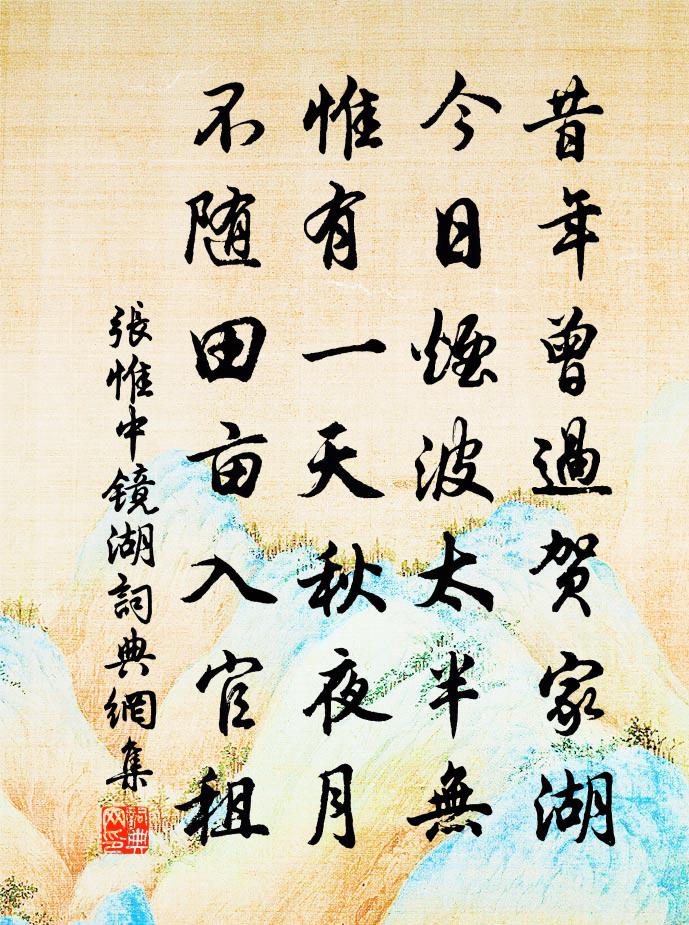 昔年曾過贺家湖
今日煙波太半無
惟有一天秋夜月
不随田亩入官租
張惟中镜湖詞典網集
詞典網印